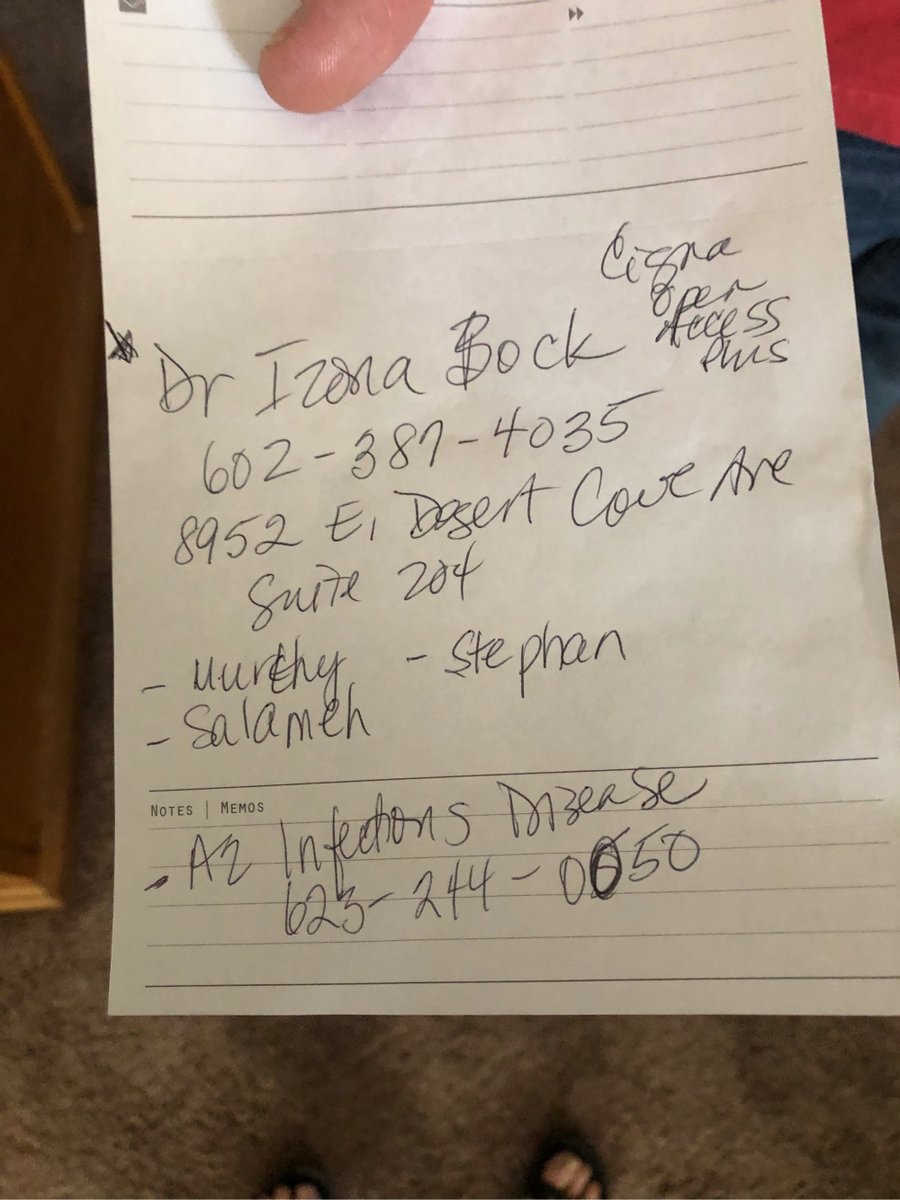 Cigna
Open
Access
Plus
Dr Izona Bock
602-387-4035
8952 E, Desert Cove Ave
Suite 204
- Murthy - Stephan
- Salameh
NOTES | MEMOS
. AZ Infections Dizease
623-244-0050